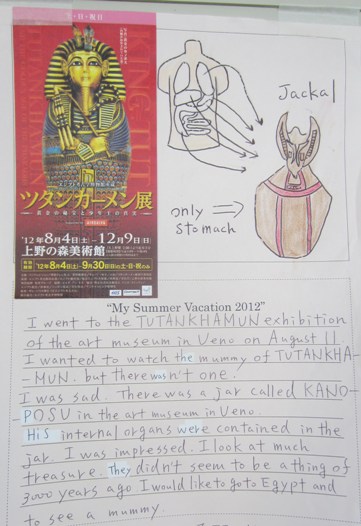 ・日・祝日
KING TUT
TUTANKHAMUN
ツタンカーメン展
～黄金の秘宝と少年王の真実～
'12年8月4日(土)～12月9日(日)
上野の森美術館
'12年8月4日(土)～9月30日(日)の土・日・祝のみ
Jackal
only ⇒
stomach
"My Summer Vacation 2012"
I went to the TUTANKHAMUN exhibition
of the art museum in Ueno on August 11
I wanted to watch the mummy of TUTANKHA-
-MUN. but there wasn't one.
I was sad. There was a jar called KANO-
POSU in the art museum in Ueno.
His internal organs were contained in the
jar. I was impressed. I look at much
treasure. They didn't seem to be a thing of
3000 years ago I would like to go to Egypt and
to see a mummy.